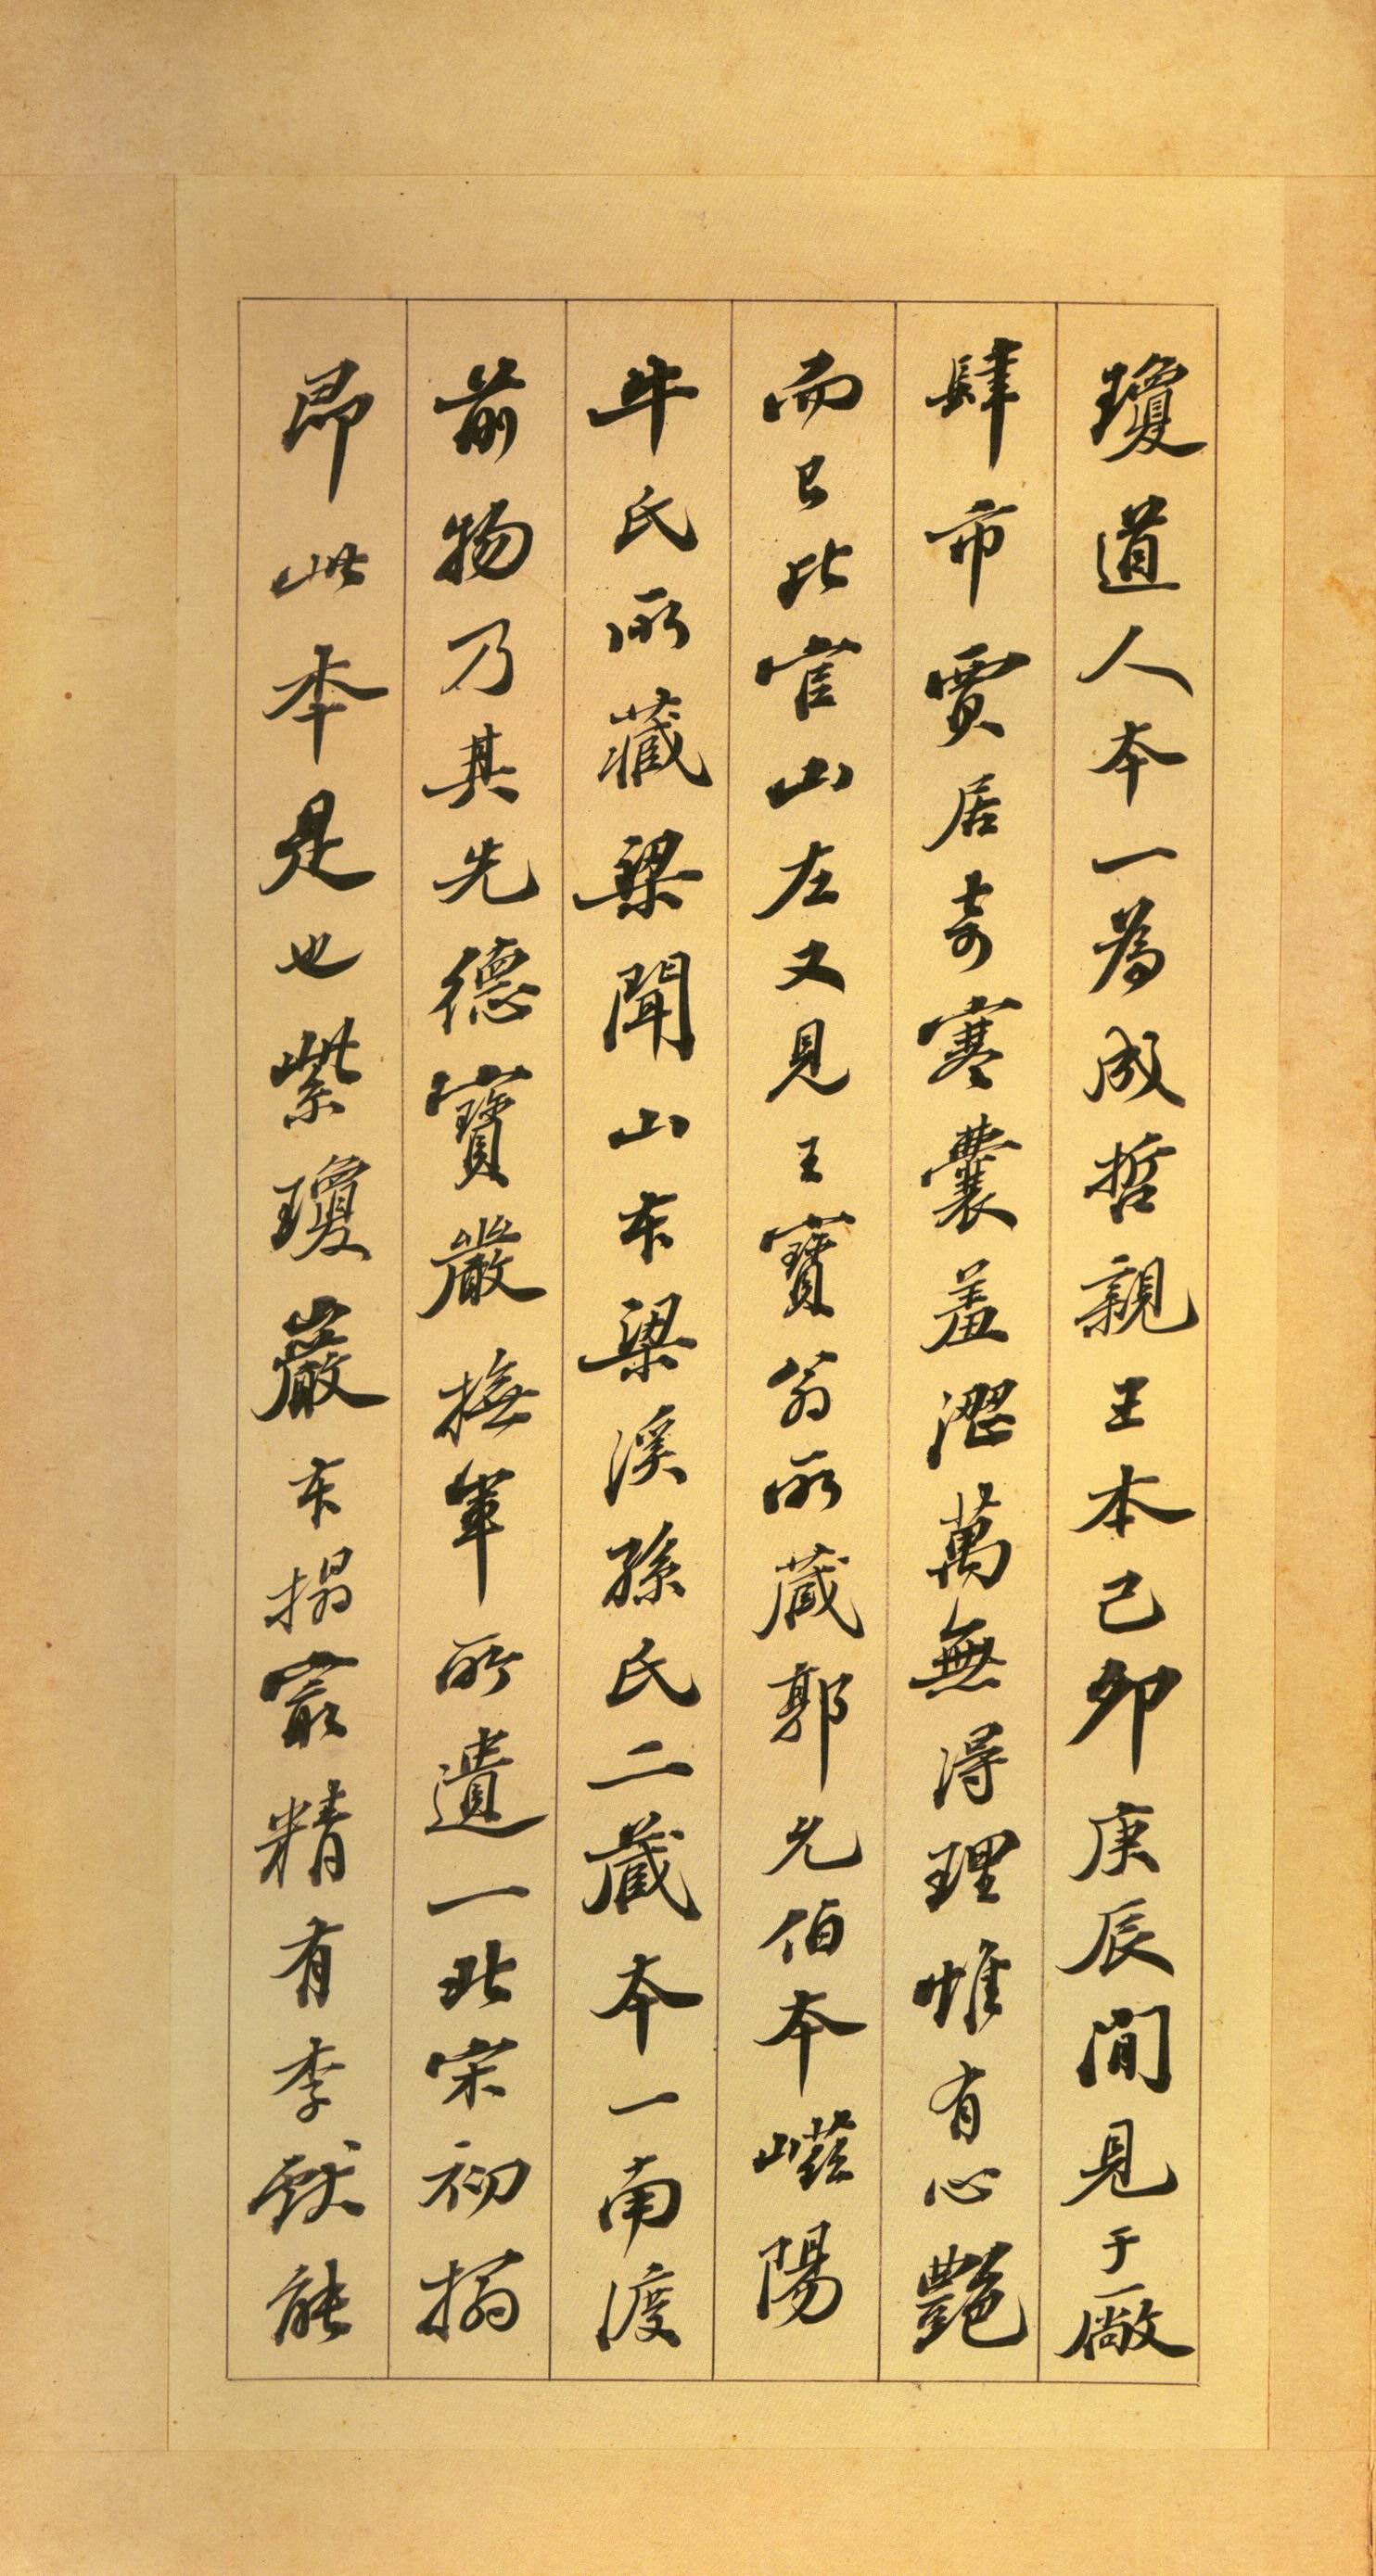 瓊道人本一為成哲親王本己卯庚辰間見于廠
肆市賈居奇寒囊羞澀萬無得理惟有心豔
而已比官山左又見王寶翁所藏郭允伯本嵫陽
牛氏所藏梁聞山本梁溪孫氏二藏本一南渡
前物乃其先德寶嚴撫軍所遺一北宋初搨
即此本是也紫瓊巖本搨最精有李猷能